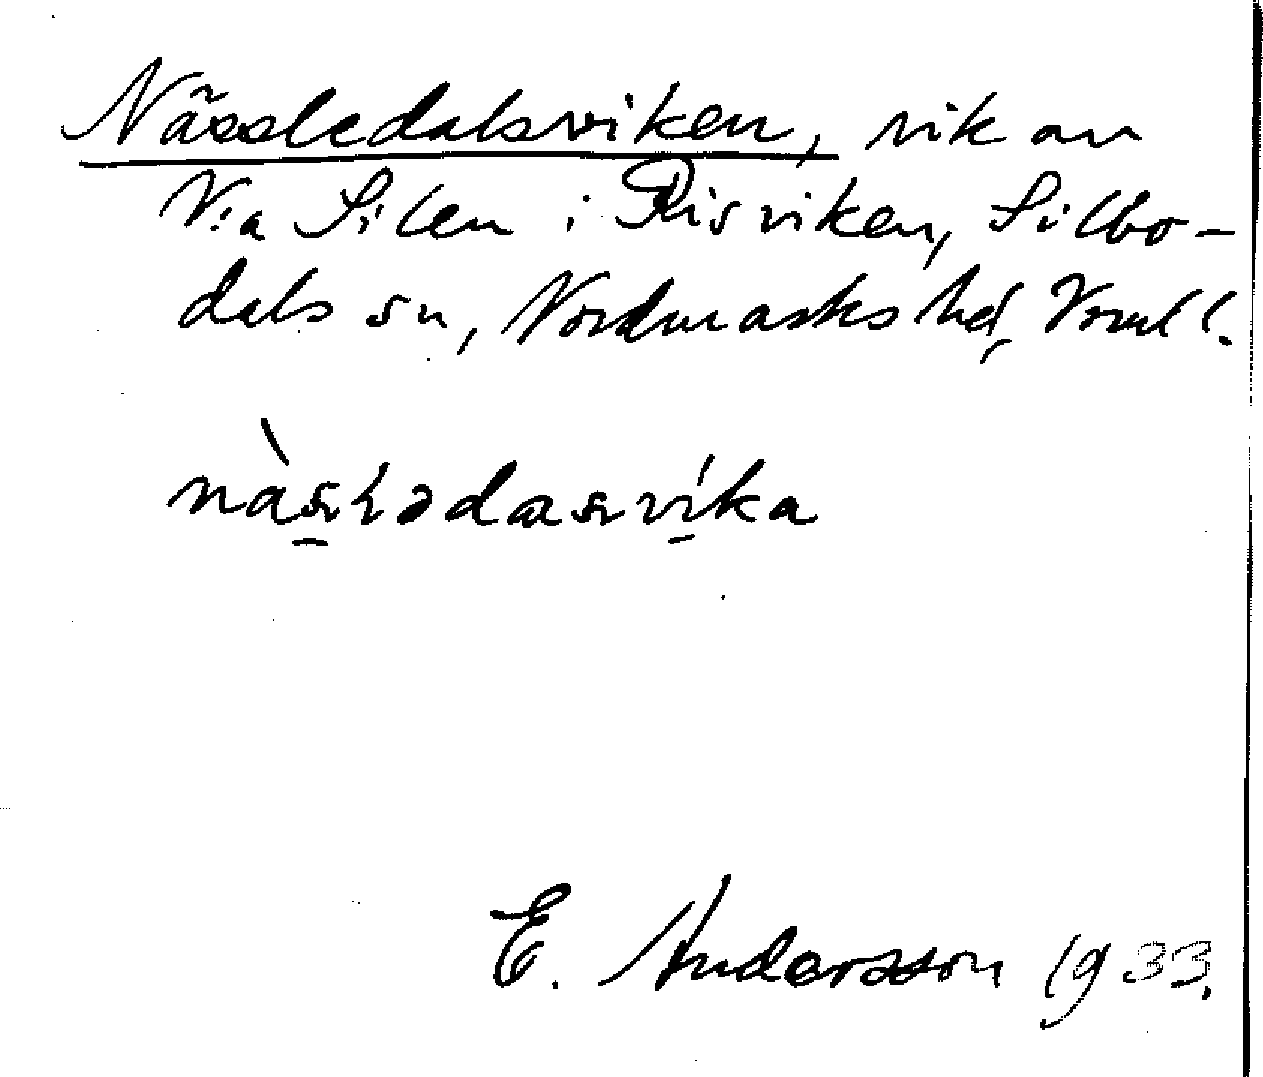 Nässledalsviken, vik av
V:a Silen i Risviken, Silbo-
dals sn, Nordmarks hd, Värml.
nàslədasvíka
E. Andersson 1933.